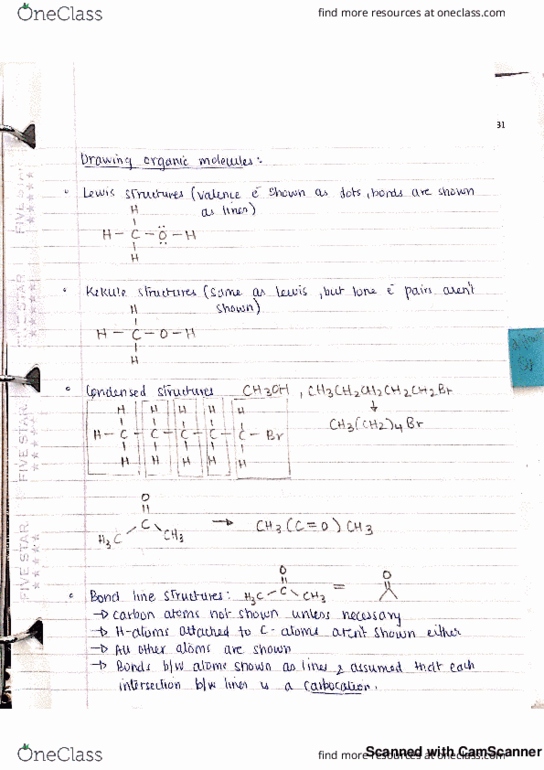 OneClass
find more resources at oneclass.com
31
Drawing organic molecules:
• Lewis structures (valence e⁻ shown as dots, bonds are shown
as lines)
H
H – C – Ö – H
H
• Kekule structures (same as lewis, but lone e⁻ pairs aren't
shown)
H
H – C – O – H
H
• Condensed structures CH3OH, CH3CH2CH2CH2CH2Br
↓
CH3(CH2)4Br
H H H H H
H – C – C – C – C – C – Br
H H H H H
O
C
H3C CH3 → CH3(C=O)CH3
• Bond line structures: H3C – C – CH3 =
O O
→ Carbon atoms not shown unless necessary
→ H-atoms attached to C-atoms aren't shown either
→ All other atoms are shown
→ Bonds b/w atoms shown as lines & assumed that each
intersection b/w lines is a carbocation.
FIVE STAR
FIVE STAR
FIVE STAR
FIVE STAR
OneClass
find more resources at oneclass.com
Scanned with CamScanner